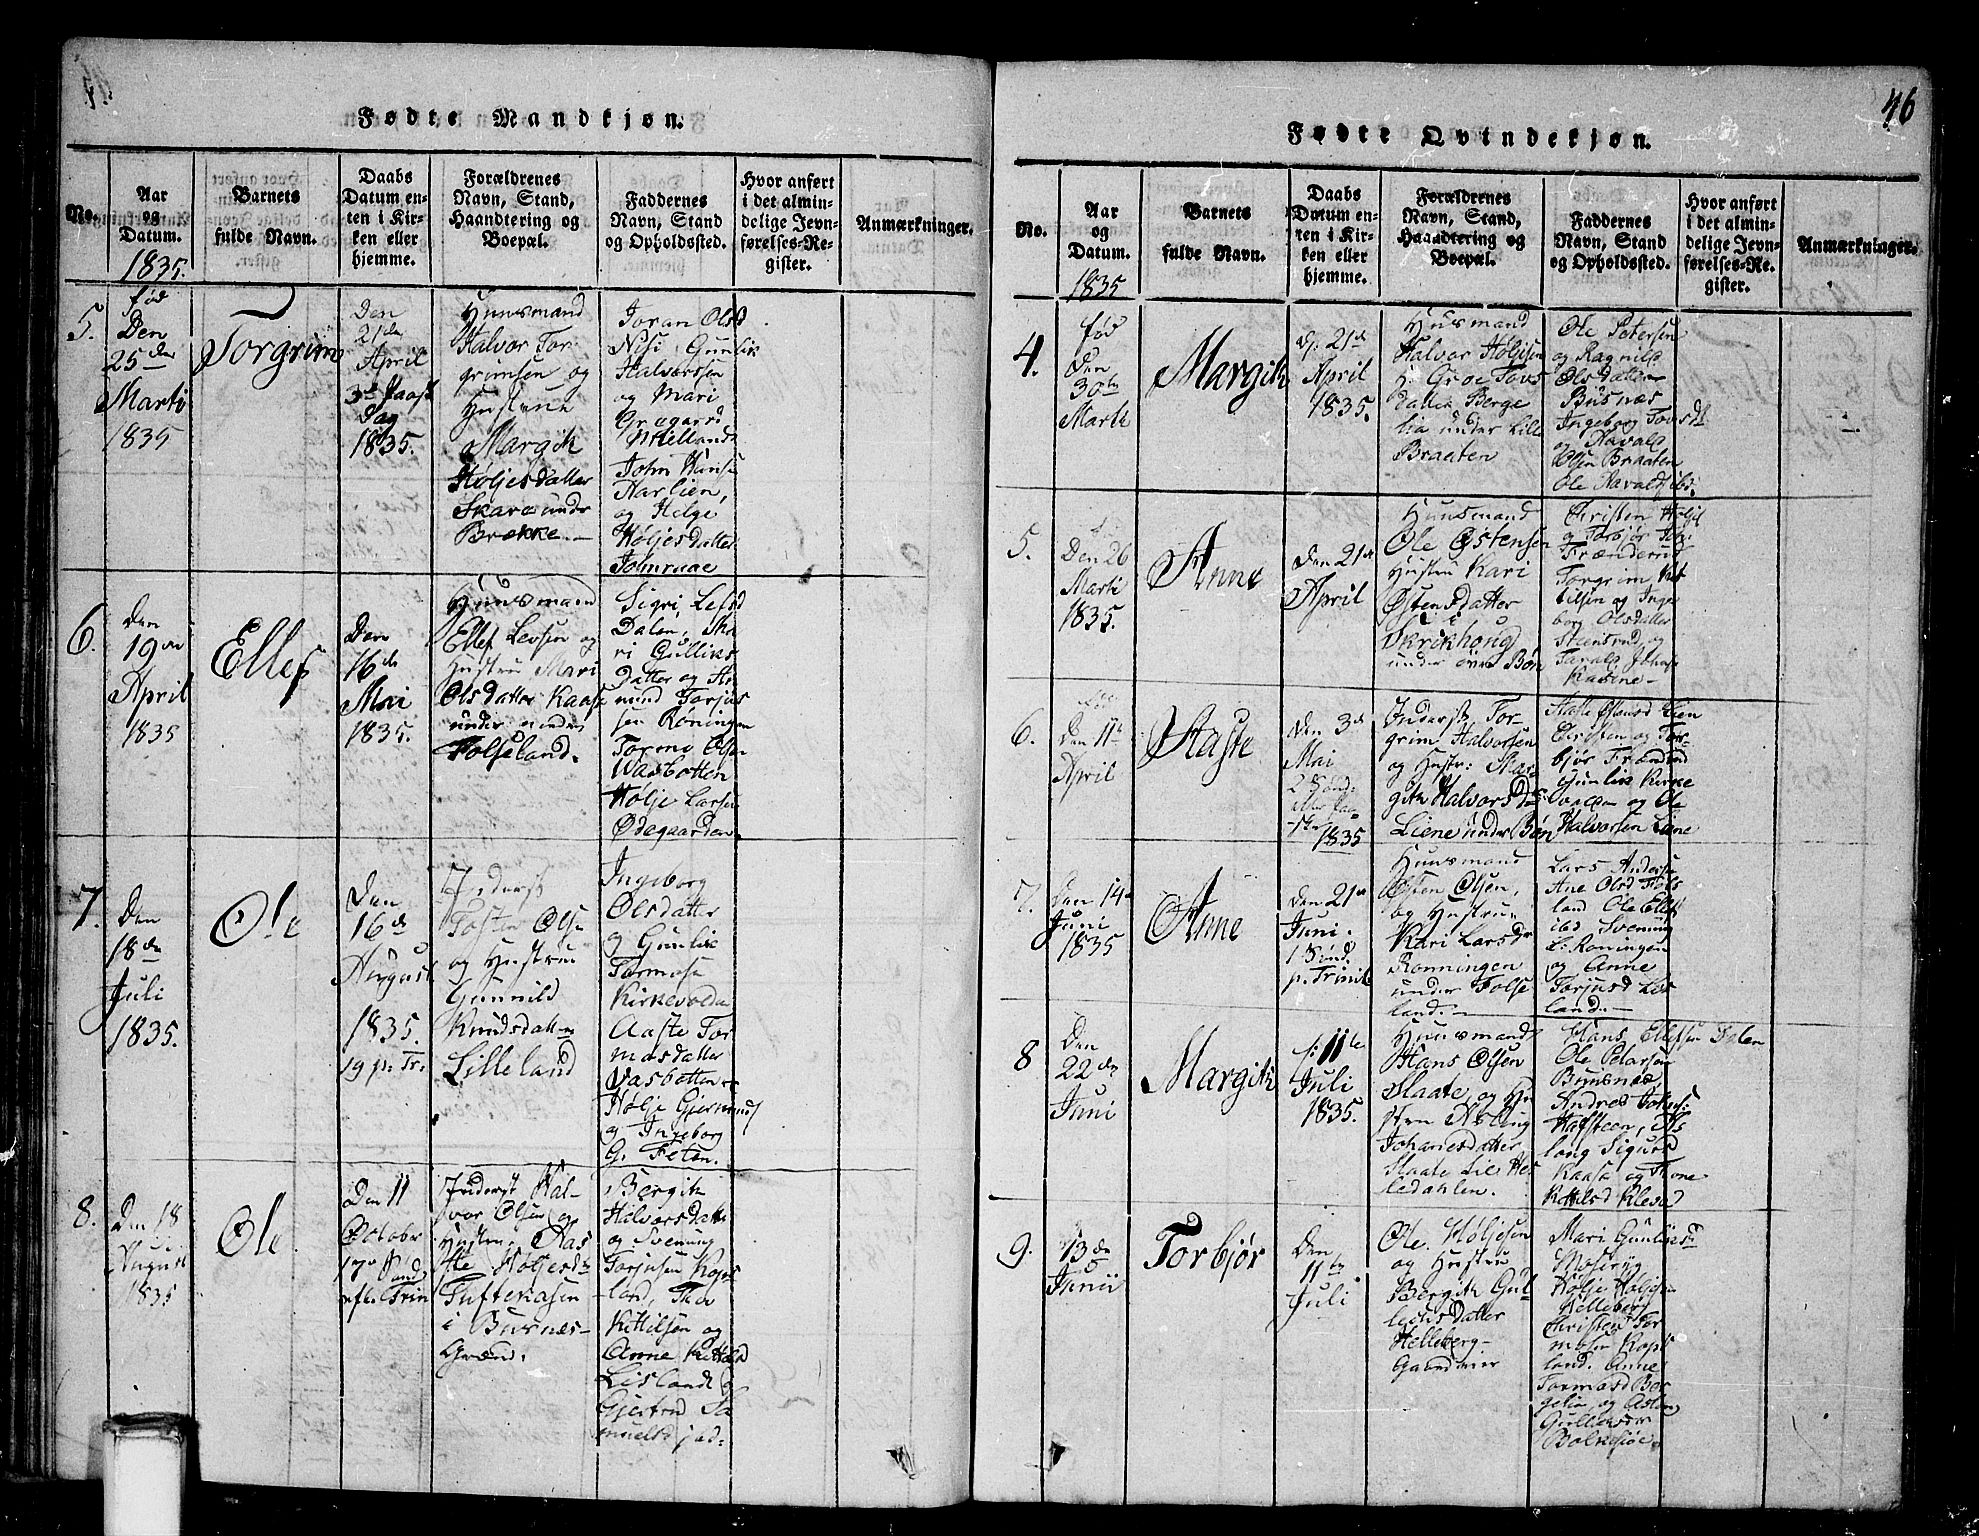 Fødte Mandkjøn.
No.
Aar
og
Datum.
1835.
Barnets
fulde Navn.
Daabs
Datum en-
ten i Kir-
ken eller
hjemme.
Forældrenes
Navn, Stand,
Haandtering og
Boepæl.
Faddernes
Navn, Stand
og Opholdssted.
Hvor anført
i det almin-
delige Jevn-
førelses-Re-
gister.
Anmærkninger.
5.
fød
Den
25de
Marti
1835
Torgrim
Den
21de
April
3die Paaske
Dag
1835.
Huusmand
Halvor Tor-
grimsen og
Hustrue
Margith
Høljesdatter
Skare under
Brække.-
Joran Olsd
Gunlik
Halvorssen
og Mari
Gregarsd
John Hansen
Haslien,
og Helge
Høljesdatter
6.
Den
19de
April
1835
Ellef
Den
16de
Mai
1835.
Huusmand
Ellef Levsen og
Hustru Mari
Olsdatter Kaasa
under nedre
Folseland.
Sigri Lefsd
Dalen,
Gulliks
Datter og
mund Torjus
sen Røningen
Tormo Olsen
Wasbotten
Hølje Larsen
Ødegaarden
7.
Den
18de
Juli
1835.
Ole
Den
16de
August
1835.
19 p. Tr.
Inderst
Tosten Olsen
og Hustru
Gunnild
Knudsdatter
Lilleland
Ingeborg
Olsdatter
og Gunlik
Tormosen
Kirkevolden
Aaste Tor
mosdatter
Vasbotten
Hølje Gjermunds
og Ingeborg
G. Feten.
8.
Den 18
August
1835
Ole
Den 11
October
17de Sønd
eft. Trin
Inderst Hal-
vor Olsen og
Hustru Aas
te Høljesdr
Tuftekasen
i Busnes-
Grænd.
Bergith
Halvorsdatter
og Svenning
Torjusen Kops
land, Thor
Kittilsen og
Anne Kittilsd
Lisland og
Gjertrud Sa
muelsd ibd.
46
Fødte Qvindekjøn.
No.
Aar
og
Datum.
1835
Barnets
fulde Navn.
Daabs
Datum en-
ten i Kir-
ken eller
hjemme.
Forældrenes
Navn, Stand,
Haandtering og
Boepæl.
Faddernes
Navn, Stand
og Opholdssted.
Hvor anført
i det almin-
delige Jevn-
førelses-Re-
gister.
Anmærkninger.
4.
fød
den
30te
Marti
Margith
d. 21de
April
1835.
Huusmand
Halvor Høljesen
h. Groe Tovs
datter Berge
lia under Lille
Braaten
Ole Petersen
og Ragnild
Olsdatter
Busnæs
Ingeborg Tovsd
og Havald
Braaten
Ole Havalds ibd.
5.
Den 26
Marti
1835.
Anne
den 21de
April
Huusmand
Ole Østensen
Hustru Kari
Østensdatter
Skrikhoug
under øvre Bøn
Christen Høljes
og Torbjør
Frænderud
Torgrim Kit
tilsen og Inge
borg Olsdatter
Steensrud og
6.
Den 11te
April
Aaste
den 3de
Mai
2 Sønd.
1835
Inderst Tor-
grim Halvorsen
og Hustr: Mar-
gith Halvorsd
Liene under Bøn
Lien
Christen og Tor-
bjør Frænderud
Gunlik Kirke
volden og Ole
Halvorsen Liene
7.
Den 14de
Juni
1835
Anne
den 21de
Juni.
1 Sønd.
p. Trinit
Huusmand
Østen Olsen,
og Hustrue
Kari Larsdr
Ronningen
under Folse
land.-
Lars Andersen
Ane Olsd Fols
land Ole Ellefs
ibd Svenning
L. Roningen
og Anne
Torjusd Lis
land.-
8
Den
22de
Juni
Margith
d: 11te
Juli
1835.
Huusmand
Hans Olsen
Slaate, og Hu
stru Aslaug
Johanesdatter
Slaate Lie, Hes
ledahlen.
Hans Ellefsen Dalen
Ole Petersen
Buisnæs,
Andres
Hafsteen, As
loug Sigurd
Kaasa og Thone
Kittilsd Klevad
9.
13de
Junii
Torbjør
Den
11te
Juli
Ole Høljesen
og Hustru
Bergith Gul
leiksdatter
Helleberg-
Gaardmer
Mari Gunliksd
Mosebøg
Hølje Høljesen
Helleberg
Christen Tor
mosen Kops
land. Anne
Tormosd Bør
gelia, og Aslaug
Gulleiksdr
Bolkesjøe